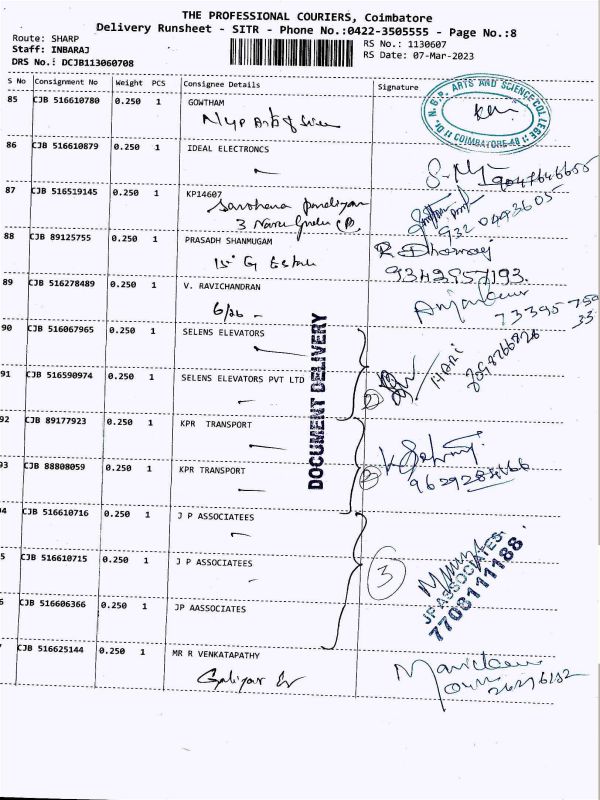 THE PROFESSIONAL COURIERS, Coimbatore
Delivery Runsheet - SITR - Phone No.:0422-3505555 - Page No.:8
Route: SHARP
Staff: INBARAJ
DRS No.: DCJB113060708
RS No.: 1130607
RS Date: 07-Mar-2023
S No Consignment No Weight PCS Consignee Details Signature
85 CJB 516610780 0.250 1 GOWTHAM
D. N.G.P. ARTS AND SCIENCE COLLEGE COIMBATORE-48
86 CJB 516610879 0.250 1 IDEAL ELECTRONCS
9047646655
87 CJB 516519145 0.250 1 KP14607
88 CJB 89125755 0.250 1 PRASADH SHANMUGAM
R Dhanraj
9342957193.
89 CJB 516278489 0.250 1 V. RAVICHANDRAN
6/26 -
90 CJB 516067965 0.250 1 SELENS ELEVATORS
DOCUMENT DELIVERY
HARI
91 CJB 516590974 0.250 1 SELENS ELEVATORS PVT LTD
2
92 CJB 89177923 0.250 1 KPR TRANSPORT
93 CJB 88808059 0.250 1 KPR TRANSPORT
2
4 CJB 516610716 0.250 1 J P ASSOCIATEES
5 CJB 516610715 0.250 1 J P ASSOCIATEES
3
JP ASSOCIATES.
7708111188
6 CJB 516606366 0.250 1 JP AASSOCIATES
7 CJB 516625144 0.250 1 MR R VENKATAPATHY